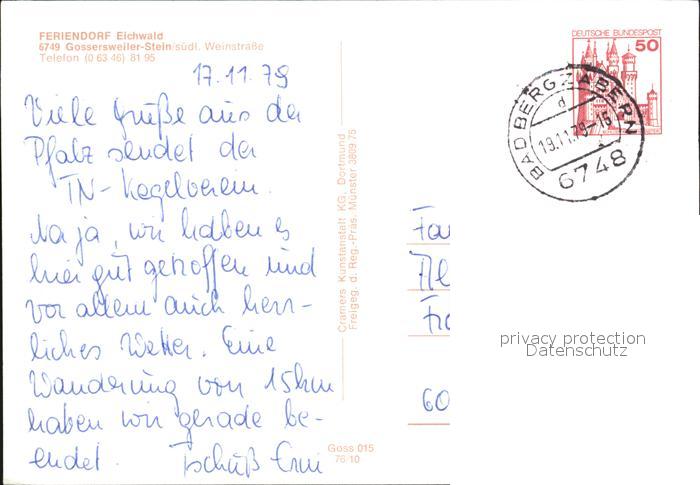 FERIENDORF Eichwald
6749 Gossersweiler-Stein/südl. Weinstraße
Telefon (0 63 46) 81 95
17.11.79
Viele Grüße aus der
Pfalz sendet der
TN-Kegelverein.
Na ja, wir haben es
hier gut getroffen und
vor allem auch herr-
liches Wetter. Eine
Wanderung von 15km
haben wir gerade be-
endet. Tschüß Erni
Goss 015
76/10
Cramers Kunstanstalt KG. Dortmund
Freigeg. d. Reg.-Präs. Münster 3809/75
DEUTSCHE BUNDESPOST
50
BAD BERGZABERN
d
19.11.79-16
6748
Fa
Fr
60
privacy protection
Datenschutz